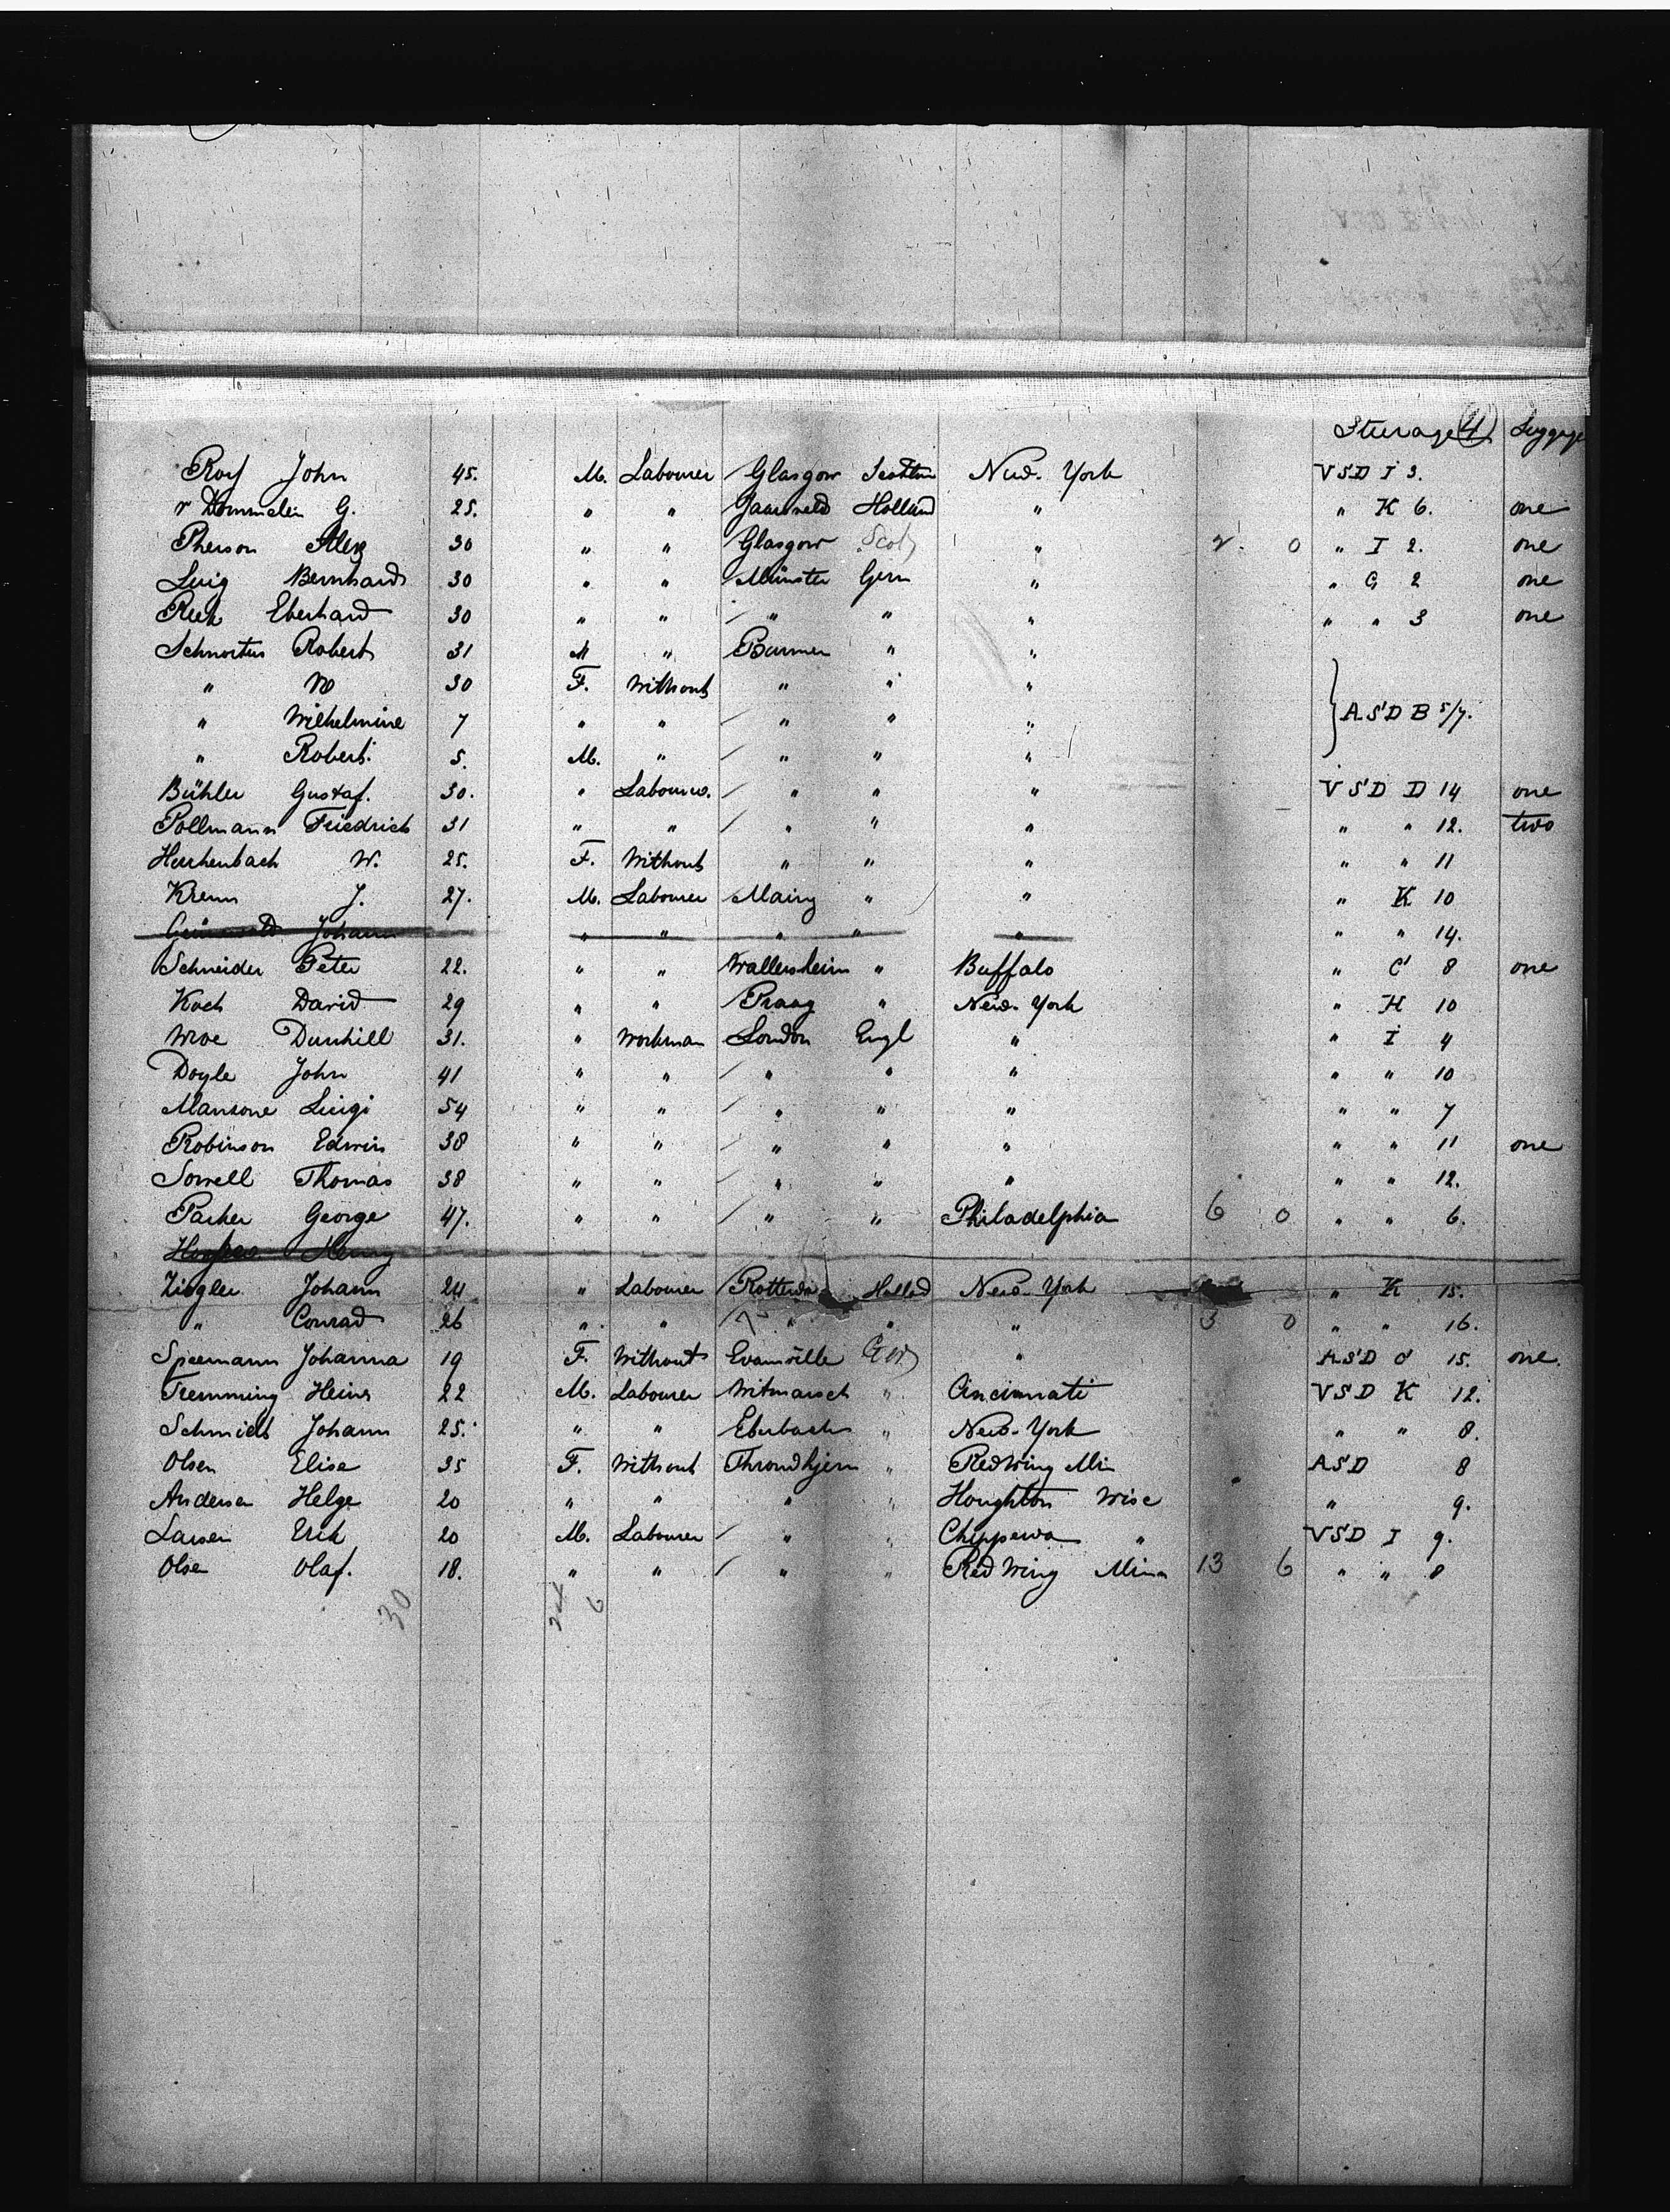 Steerage (4) Luggage
Roy John 45. M. Labourer Glasgow New-York VSD I 3.
v Dommelen G. 25. " " Jaarsveld Holland " " K 6. one
Pherson Alex 30 " " Glasgow Scot " 2. 0 " I 2. one
Luig Bernhard 30 " " Münster Germ " " G 2 one
Eberhard 30 " " " " " " " 3 one
Robert 31 M " Barmen " "
" 30 F. Without " " "
" Wilhelmine 7 " " " " " } ASD B 5/7.
" Robert. 5. M. " " " "
Bühler Gustaf. 30. " Labourer. " " " VSD D 14 one
Pollmann Friedrich 31 " " " " " " " 12. two
Herchenbach W. 25. F. Without " " " " " 11
J. 27. M. Labourer " " " K 10
Johann " " " " " " " 14.
Schneider Peter 22. " " Wallersheim " Buffalo " C 8 one
Koch David 29 " " Praag " New-York " H 10
Wroe Dunhill 31. " Workman London Engl " " I 4
Doyle John 41 " " " " " " " 10
Mansone Luigi 54 " " " " " " " 7
Robinson Edwin 38 " " " " " " " 11 one
Sorrell Thomas 38 " " " " " " " 12.
Parker George 47. " " " " Philadelphia 6 0 " " 6.
Henry
Ziegler Johann 24 " Labourer Holland New-York " K 15.
" Conrad 26 " " " " " 3 0 " " 16.
Speemann Johanna 19 F. Without Evansville Ger " ASD C 15. one.
Flemming Heinr 22 M. Labourer Witmarsch " Cincinnati VSD K 12.
Schmidt Johann 25. " " Eberbach " New-York " " 8.
Olsen Elise 35 F. Without Throndhjem " Redwing Min ASD 8
Andersen Helge 20 " " " " Houghton Wisc " 9.
Larsen Erik 20 M. Labourer " " Chippewa " VSD I 9.
Olsen Olaf. 18. " " " " Red Wing Minn 13 6 " " 8
30 24 6